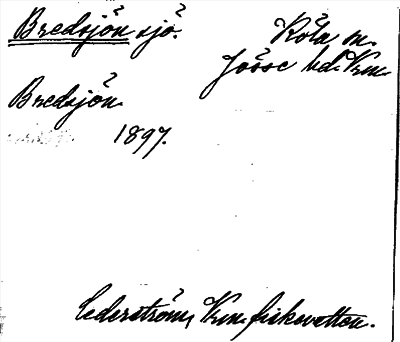 Bredsjön sjö.
Köla sn.
Jösse hd. Vrm.
Bredsjön.
1897.
Cederström, Vrm. fiskevatten.